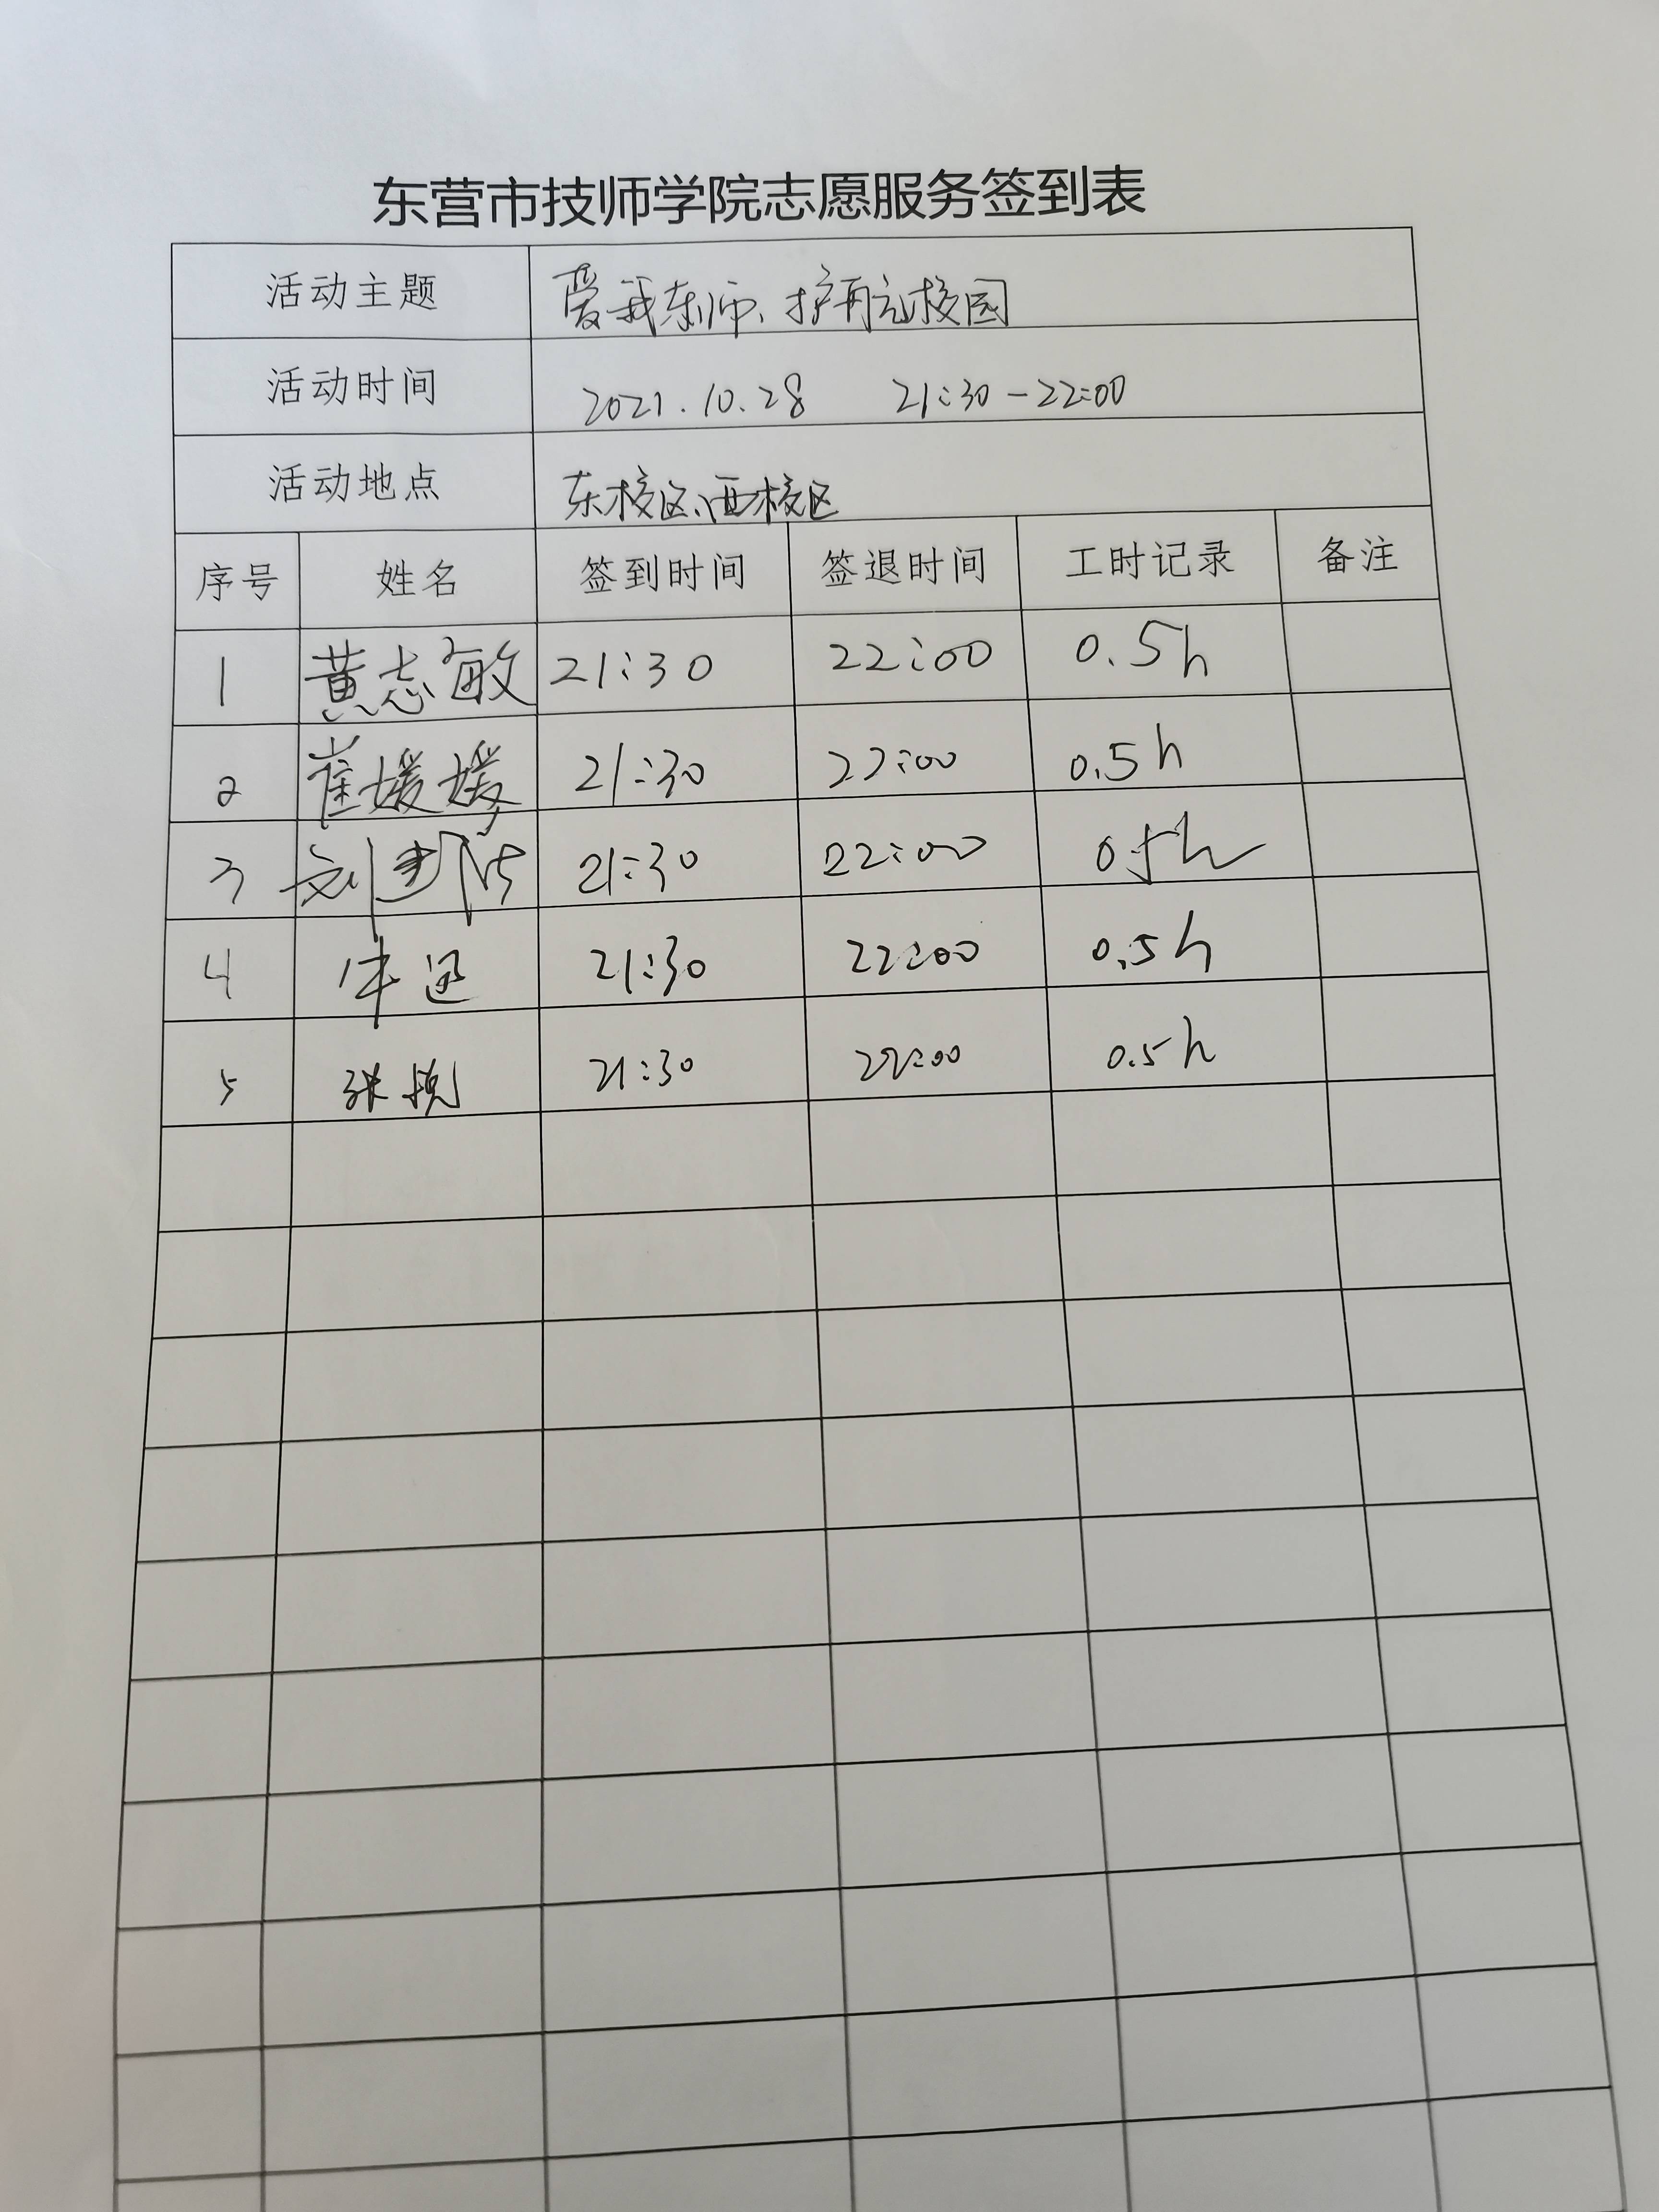 东营市技师学院志愿服务签到表
活动主题 爱我东师、护航校园
活动时间 2021.10.28 21:30-22:00
活动地点 东校区、西校区
序号 姓名 签到时间 签退时间 工时记录 备注
1 黄志敏 21:30 22:00 0.5h
2 崔媛媛 21:30 22:00 0.5h
3 刘 21:30 22:00 0.5h
4 21:30 22:00 0.5h
5 张 21:30 22:00 0.5h